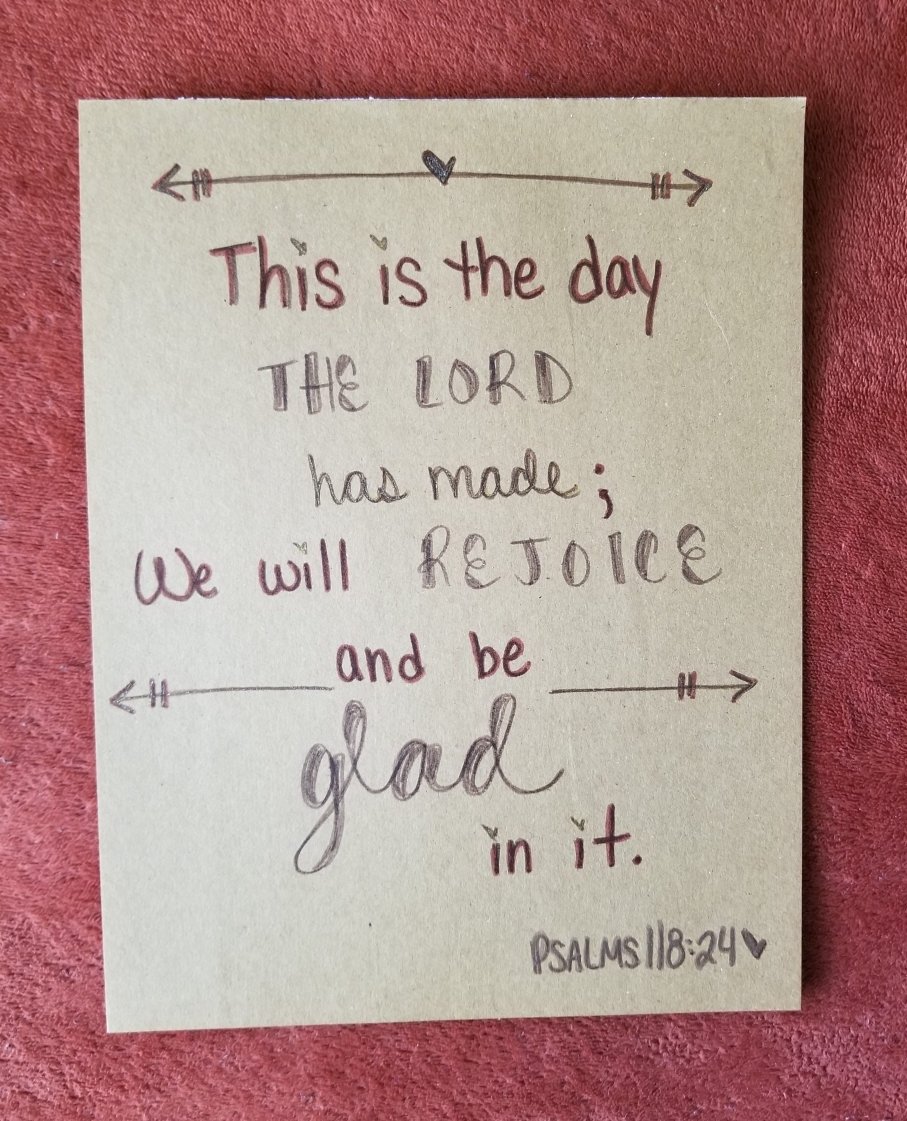 This is the day
THE LORD
has made;
We will REJOICE
and be
glad
in it.
PSALMS 118:24